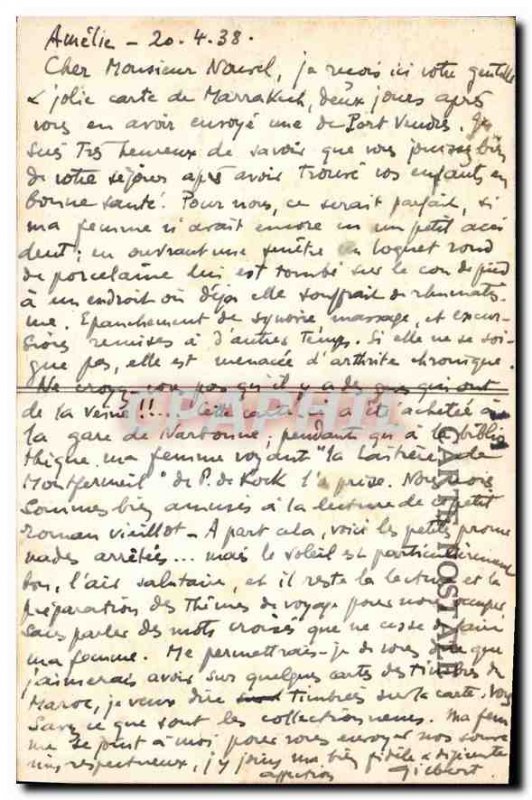 Amélie - 20.4.38.
Cher Monsieur Nouvel, je reçois ici votre gentille
& jolie carte de Marrakech, deux jours après
vous en avoir envoyé une de Port Vendres. Je
suis très heureux de savoir que vous jouissez bien
de votre séjour après avoir trouvé vos enfants en
bonne santé. Pour nous, ce serait parfait, si
ma femme n'avait encore eu un petit acci
dent; en ouvrant une fenêtre un loquet rond
de porcelaine lui est tombé sur le cou de pied
à un endroit où déjà elle souffrait de rhumatis
me. Epanchement de synovie massage, et excur-
sions remises à d'autres temps. Si elle ne se soi-
gne pas, elle est menacée d'arthrite chronique.
Ne croyez vous pas qu'il y a des gens qui ont
de la veine!!... Cette carte-ci a été achetée à
la gare de Narbonne, pendant qu'à la biblio
thèque ma femme voyant "la Laitière de
Montfermeil" de P. de Kock l'a prise. Nous nous
sommes bien amusés à la lecture de ce petit
roman vieillot - A part cela, voici les petites prome
nades arrêtées... mais le soleil est particulièrement
bon, l'air salutaire, et il reste la lecture et la
préparation des thèmes de voyage pour nous occuper
sans parler des mots croisés que ne cesse de faire
ma femme. Me permettrais-je de vous dire que
j'aimerais avoir sur quelques cartes des timbres de
Maroc, je veux dire timbrées sur la carte. Vous
savez ce que sont les collectionneurs. Ma fem
me se joint à moi pour vous envoyer nos souve
nirs respectueux, j'y joins ma bien fidèle &
affection Gilbert.
CARTE POSTALE
DELCAMPHIL